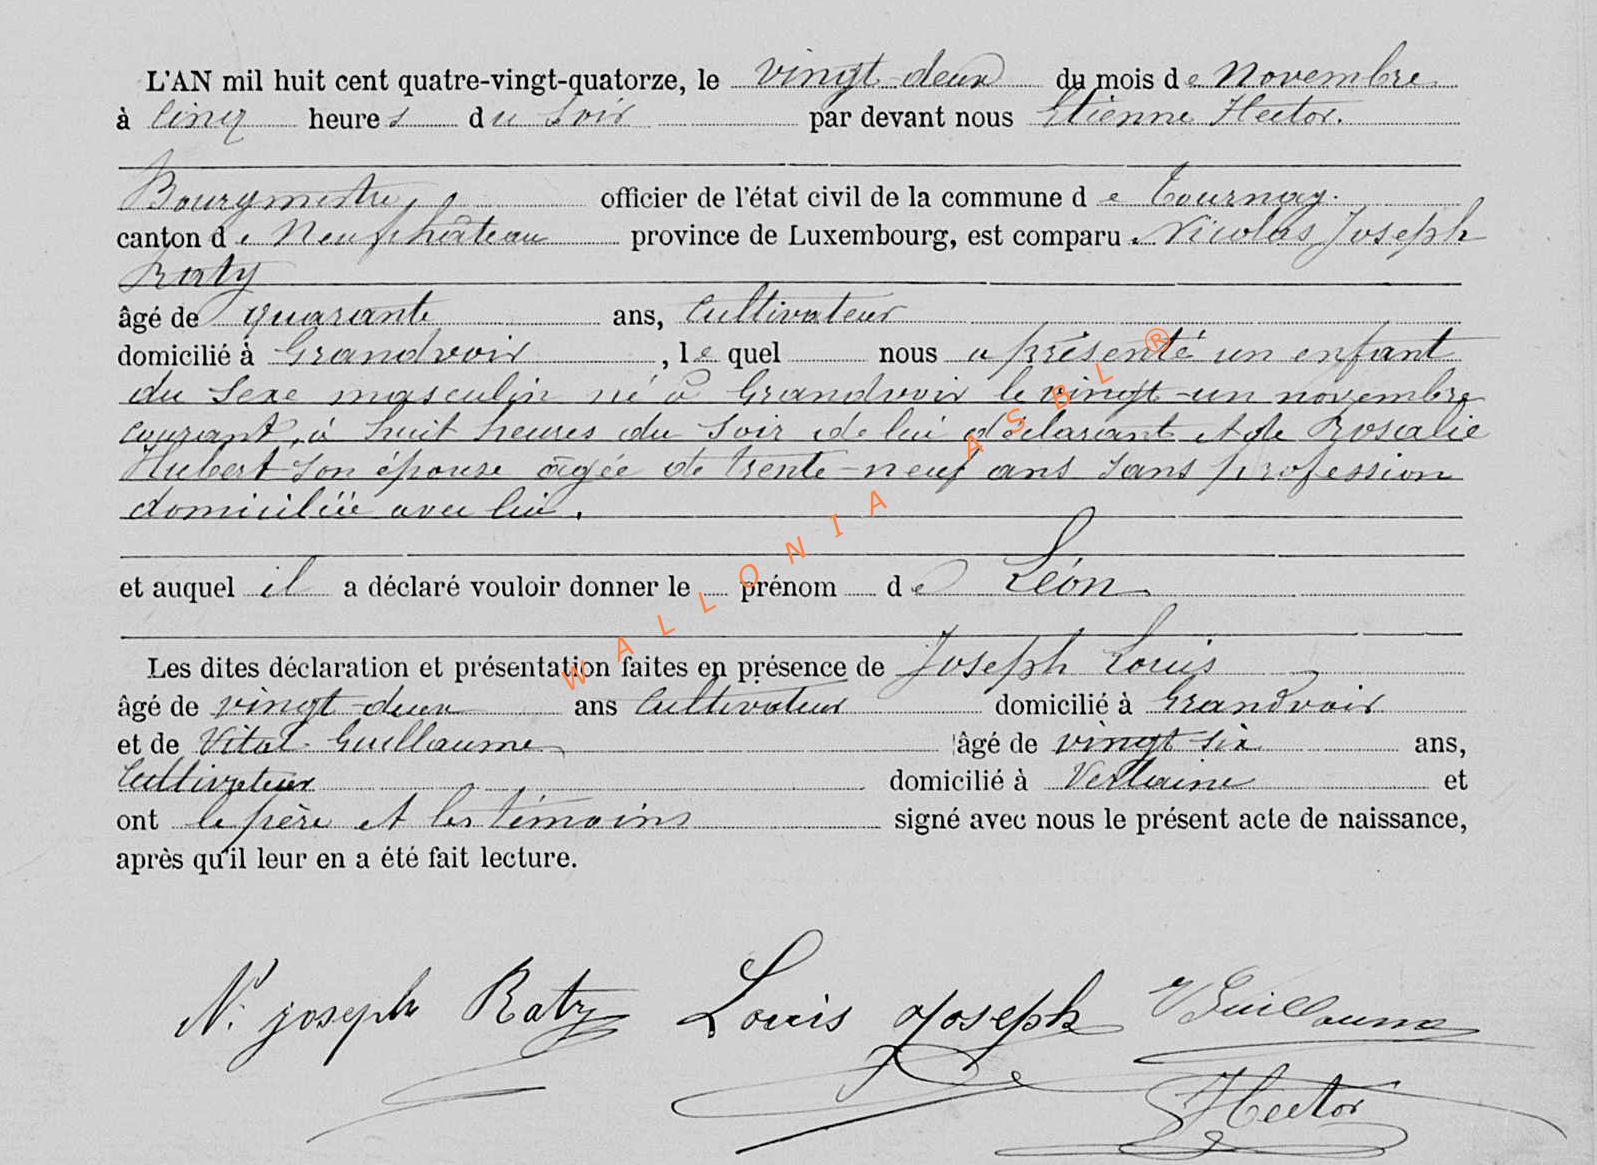 L'AN mil huit cent quatre-vingt-quatorze, le vingt-deux du mois de Novembre
à cinq heures du soir par devant nous Etienne Hector.
Bourgmestre, officier de l'état civil de la commune de Tournay.
canton de Neufchâteau province de Luxembourg, est comparu Nicolas Joseph
Raty
âgé de quarante ans, cultivateur
domicilié à Grandvoir, lequel nous a présenté un enfant
du sexe masculin né à Grandvoir le vingt-un novembre
courant, à huit heures du soir de lui déclarant et de Rosalie
Hubert son épouse âgée de trente-neuf ans sans profession
domiciliée avec lui.
et auquel il a déclaré vouloir donner le prénom de Léon
Les dites déclaration et présentation faites en présence de Joseph Louis
âgé de vingt-deux ans cultivateur domicilié à Grandvoir
et de Vital Guillaume âgé de vingt six ans,
cultivateur domicilié à Verlaine et
ont le père et les témoins signé avec nous le présent acte de naissance,
après qu'il leur en a été fait lecture.
N. joseph Raty Louis Joseph V Guillaume
Hector
WALLONIA ASBL ®